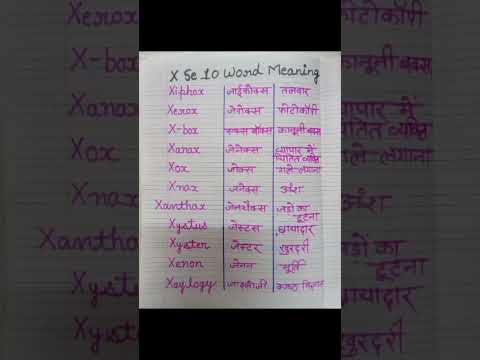 X Se 10 Word Meaning
Xiphox जाईफोक्स तलवार
Xerox जेरोक्स फोटोकॉपी
X-box एक्स बॉक्स कानूनी बक्स
Xanax जेनेक्स व्यापार में चिंतित व्यक्ति
Xox जोक्स गले लगाना
Xnax जनेक्स अंश
Xanthax जेनथैक्स जडो का टूटना
Xystus जेस्टस छायादार
Xyster जेस्टर खुरदरी
Xenon जेनन मूर्ति
Xoylogy